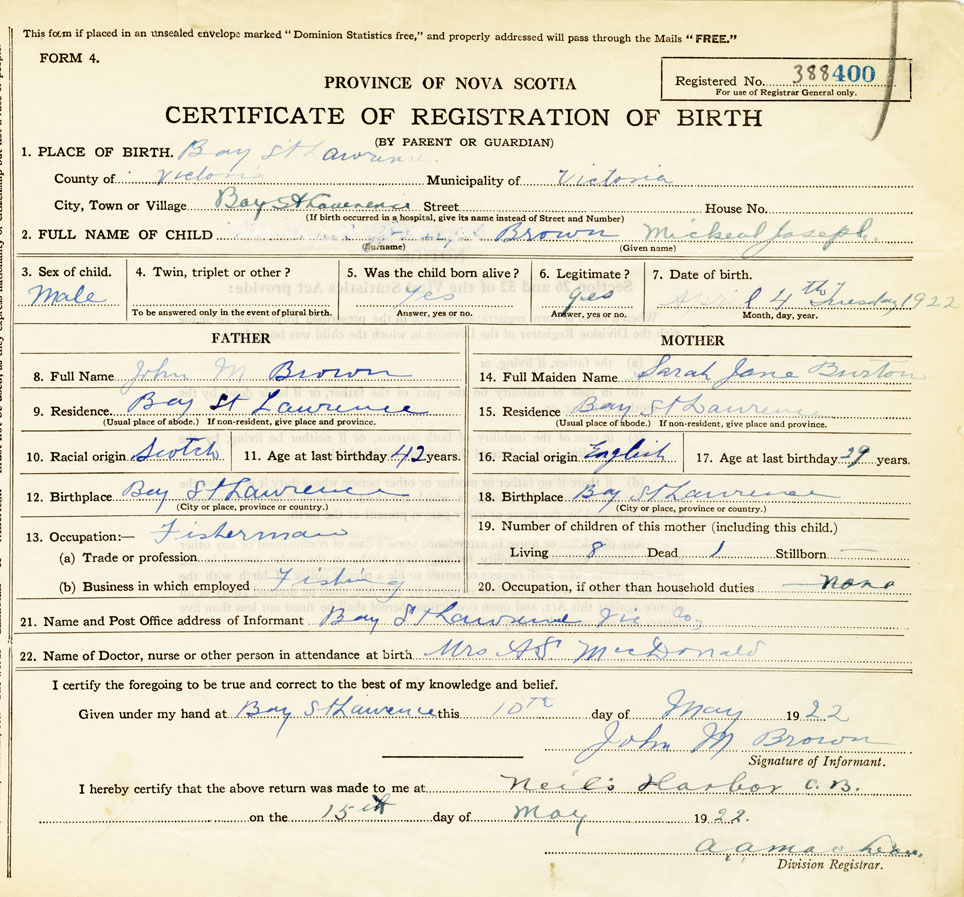 This form if placed in an unsealed envelope marked "Dominion Statistics free," and properly addressed will pass through the Mails "FREE."
FORM 4.
Registered No. 388400
For use of Registrar General only.
PROVINCE OF NOVA SCOTIA
CERTIFICATE OF REGISTRATION OF BIRTH
(BY PARENT OR GUARDIAN)
1. PLACE OF BIRTH. Bay St Lawrence
County of Victoria Municipality of Victoria
City, Town or Village Bay St Lawrence Street House No.
(If birth occurred in a hospital, give its name instead of Street and Number)
2. FULL NAME OF CHILD Brown Micheal Joseph.
(Surname) (Given name)
3. Sex of child. 4. Twin, triplet or other? 5. Was the child born alive? 6. Legitimate? 7. Date of birth.
Male Yes yes April 4th Tuesday 1922
To be answered only in the event of plural birth. Answer, yes or no. Answer, yes or no. Month, day, year.
FATHER MOTHER
8. Full Name John M Brown 14. Full Maiden Name Sarah Jane Burton
9. Residence. Bay St Lawrence 15. Residence Bay St Lawrence
(Usual place of abode.) If non-resident, give place and province. (Usual place of abode.) If non-resident, give place and province.
10. Racial origin Scotch 11. Age at last birthday 42 years. 16. Racial origin English 17. Age at last birthday 29 years.
12. Birthplace Bay St Lawrence 18. Birthplace Bay St Lawrence
(City or place, province or country.) (City or place, province or country.)
13. Occupation:— Fisherman 19. Number of children of this mother (including this child.)
(a) Trade or profession Living 8 Dead 1 Stillborn —
(b) Business in which employed Fishing 20. Occupation, if other than household duties — none
21. Name and Post Office address of Informant Bay St Lawrence Vic Co,
22. Name of Doctor, nurse or other person in attendance at birth Mrs AS MacDonald
I certify the foregoing to be true and correct to the best of my knowledge and belief.
Given under my hand at Bay St Lawrence this 10th day of May 1922
John M Brown
Signature of Informant.
I hereby certify that the above return was made to me at Neil's Harbor C.B.
on the 15th day of May 1922.
Division Registrar.